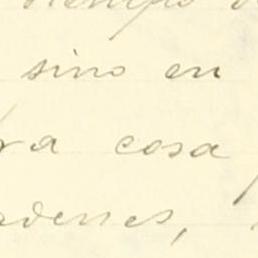 tiempo
sino en
ra cosa
rdenes,